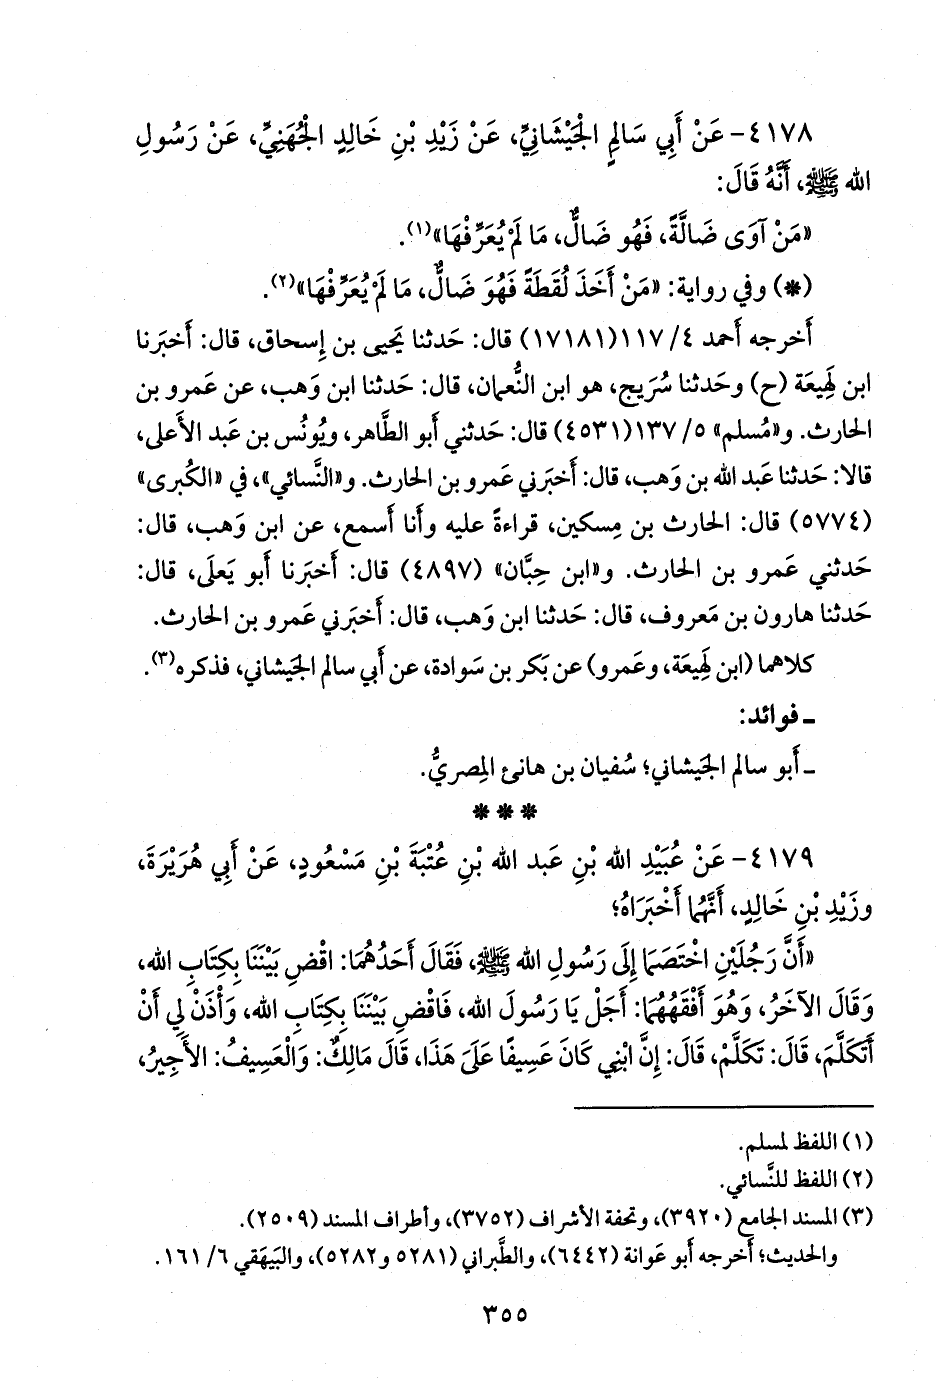 ٤١٧٨- عَنْ أَبِي سَالِمٍ الْجَيْشَانِيِّ، عَنْ زَيْدِ بْنِ خَالِدٍ الْجُهَنِيِّ، عَنْ رَسُولِ
الله ﷺ، أَنَّهُ قَالَ:
«مَنْ آوَى ضَالَّةً، فَهُو ضَالٌّ، مَا لَمْ يُعَرِّفْهَا»(١).
(*) وفي رواية: «مَنْ أَخَذَ لُقَطَةً فَهُوَ ضَالٌّ، مَا لَمْ يُعَرِّفْهَا»(٢).
أَخرجه أَحمد ٤/ ١١٧(١٧١٨١) قال: حَدثنا يَحيى بن إِسحاق، قال: أَخبَرنا
ابن لَهِيعَة (ح) وحَدثنا سُرَيج، هو ابن النُّعمان، قال: حَدثنا ابن وَهب، عن عَمرو بن
الحارث. و«مُسلم» ٥/ ١٣٧(٤٥٣١) قال: حَدثني أَبو الطَّاهر، ويُونُس بن عَبد الأَعلى،
قالا: حَدثنا عَبد الله بن وَهب، قال: أَخبَرني عَمرو بن الحارث. و«النَّسائي»، في «الكُبرى»
(٥٧٧٤) قال: الحارث بن مِسكين، قراءةً عليه وأَنا أَسمع، عن ابن وَهب، قال:
حَدثني عَمرو بن الحارث. و«ابن حِبَّان» (٤٨٩٧) قال: أَخبَرنا أَبو يَعلَى، قال:
حَدثنا هارون بن مَعروف، قال: حَدثنا ابن وَهب، قال: أَخبَرني عَمرو بن الحارث.
كلاهما (ابن لَهِيعَة، وعَمرو) عن بَكر بن سَوادة، عن أَبي سالم الجَيشاني، فذكره(٣).
ـ فوائد:
ـ أَبو سالم الجَيشاني؛ سُفيان بن هانئ المِصريُّ.
* * *
٤١٧٩- عَنْ عُبَيْدِ الله بْنِ عَبد الله بْنِ عُتْبَةَ بْنِ مَسْعُودٍ، عَنْ أَبِي هُرَيْرَةَ،
وزَيْدِ بْنِ خَالِدٍ، أَنَّهُمَا أَخْبَرَاهُ؛
«أَنَّ رَجُلَيْنِ اخْتَصَمَا إِلَى رَسُولِ الله ﷺ، فَقَالَ أَحَدُهُمَا: اقْضِ بَيْنَنَا بِكِتَابِ الله،
وَقَالَ الآخَرُ، وَهُوَ أَفْقَهُهُمَا: أَجَلْ يَا رَسُولَ الله، فَاقْضِ بَيْنَنَا بِكِتَابِ الله، وَأْذَنْ لِي أَنْ
أَتَكَلَّمَ، قَالَ: تَكَلَّمْ، قَالَ: إِنَّ ابْنِي كَانَ عَسِيفًا عَلَى هَذَا، قَالَ مَالِكٌ: وَالْعَسِيفُ: الأَجِيرُ،
(١) اللفظ لمسلم.
(٢) اللفظ للنَّسائي.
(٣) المسند الجامع (٣٩٢٠)، وتحفة الأشراف (٣٧٥٢)، وأطراف المسند (٢٥٠٩).
والحديث؛ أَخرجه أَبو عَوانة (٦٤٤٢)، والطَّبراني (٥٢٨١ و٥٢٨٢)، والبَيهَقي ٦/ ١٦١.
٣٥٥